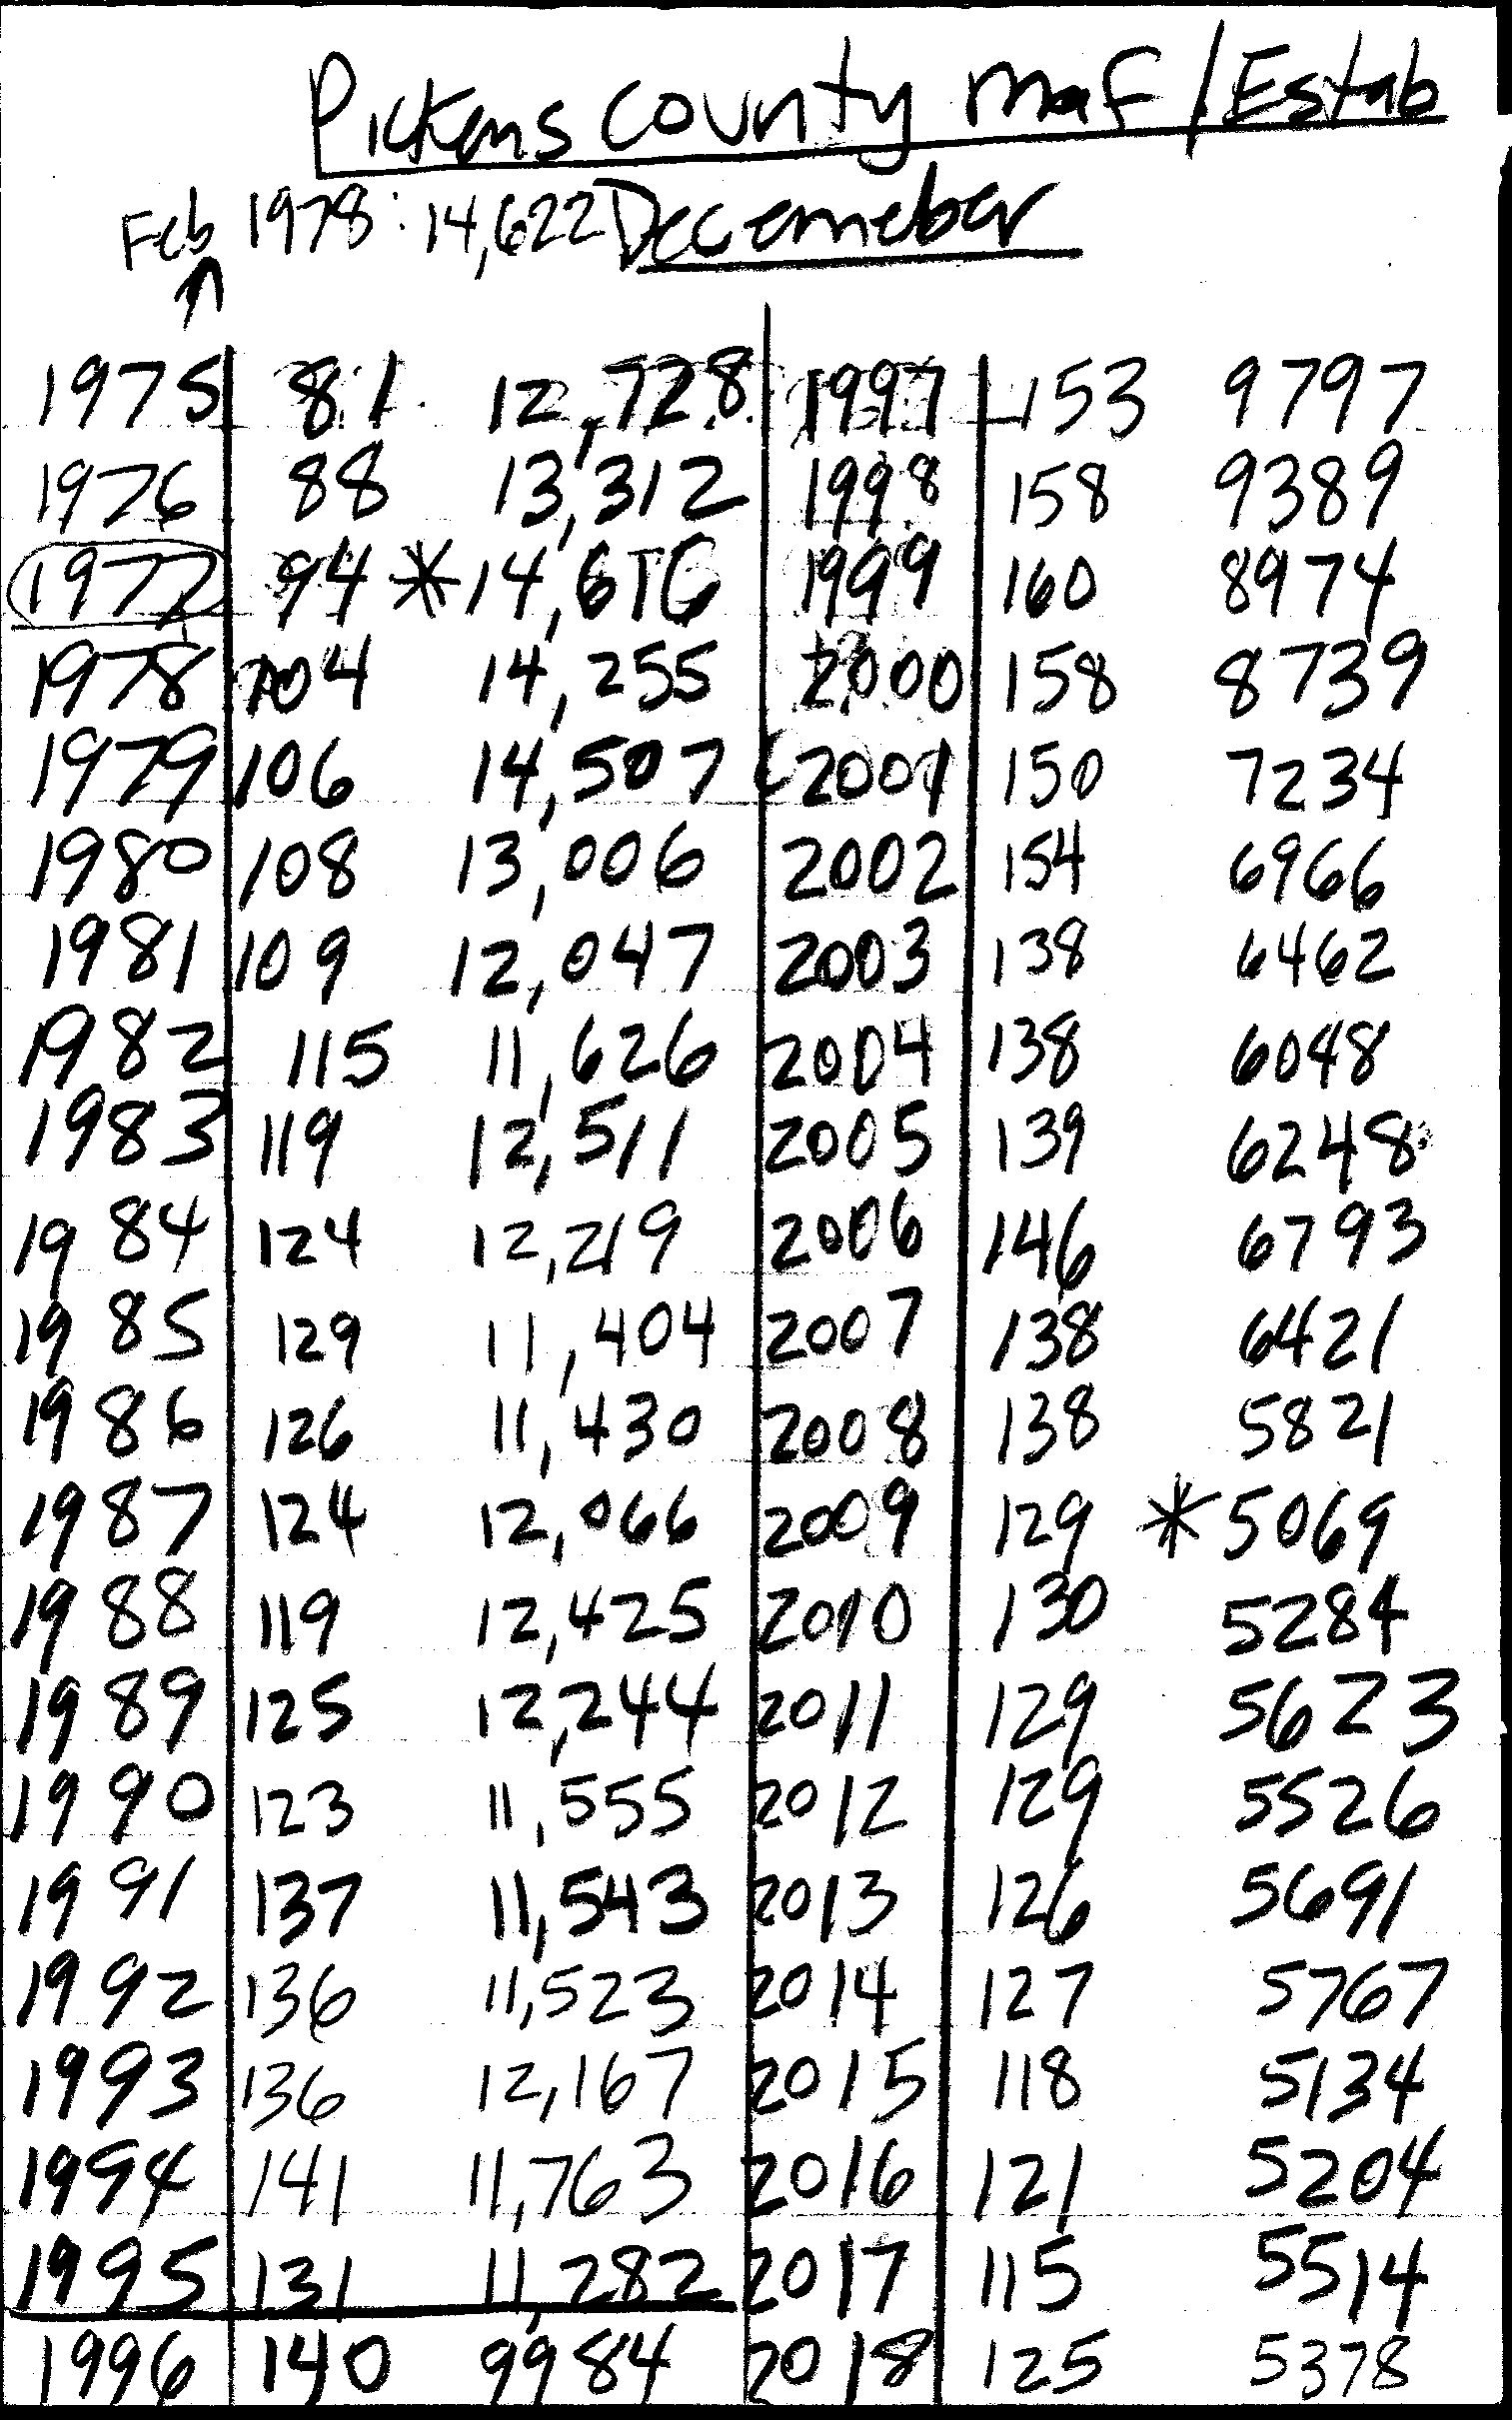 Pickens County Maf / Estab
Feb 1978: 14,622 Decemeber
1975 81 12,728 1997 153 9797
1976 88 13,312 1998 158 9389
1977 94 *14,616 1999 160 8974
1978 104 14,255 2000 158 8739
1979 106 14,507 2001 150 7234
1980 108 13,006 2002 154 6966
1981 109 12,047 2003 138 6462
1982 115 11,626 2004 138 6048
1983 119 12,511 2005 139 6248
1984 124 12,219 2006 146 6793
1985 129 11,404 2007 138 6421
1986 126 11,430 2008 138 5821
1987 124 12,066 2009 129 *5069
1988 119 12,425 2010 130 5284
1989 125 12,244 2011 129 5623
1990 123 11,555 2012 129 5526
1991 137 11,543 2013 126 5691
1992 136 11,523 2014 127 5767
1993 136 12,167 2015 118 5134
1994 141 11,763 2016 121 5204
1995 131 11,282 2017 115 5514
1996 140 9984 2018 125 5378